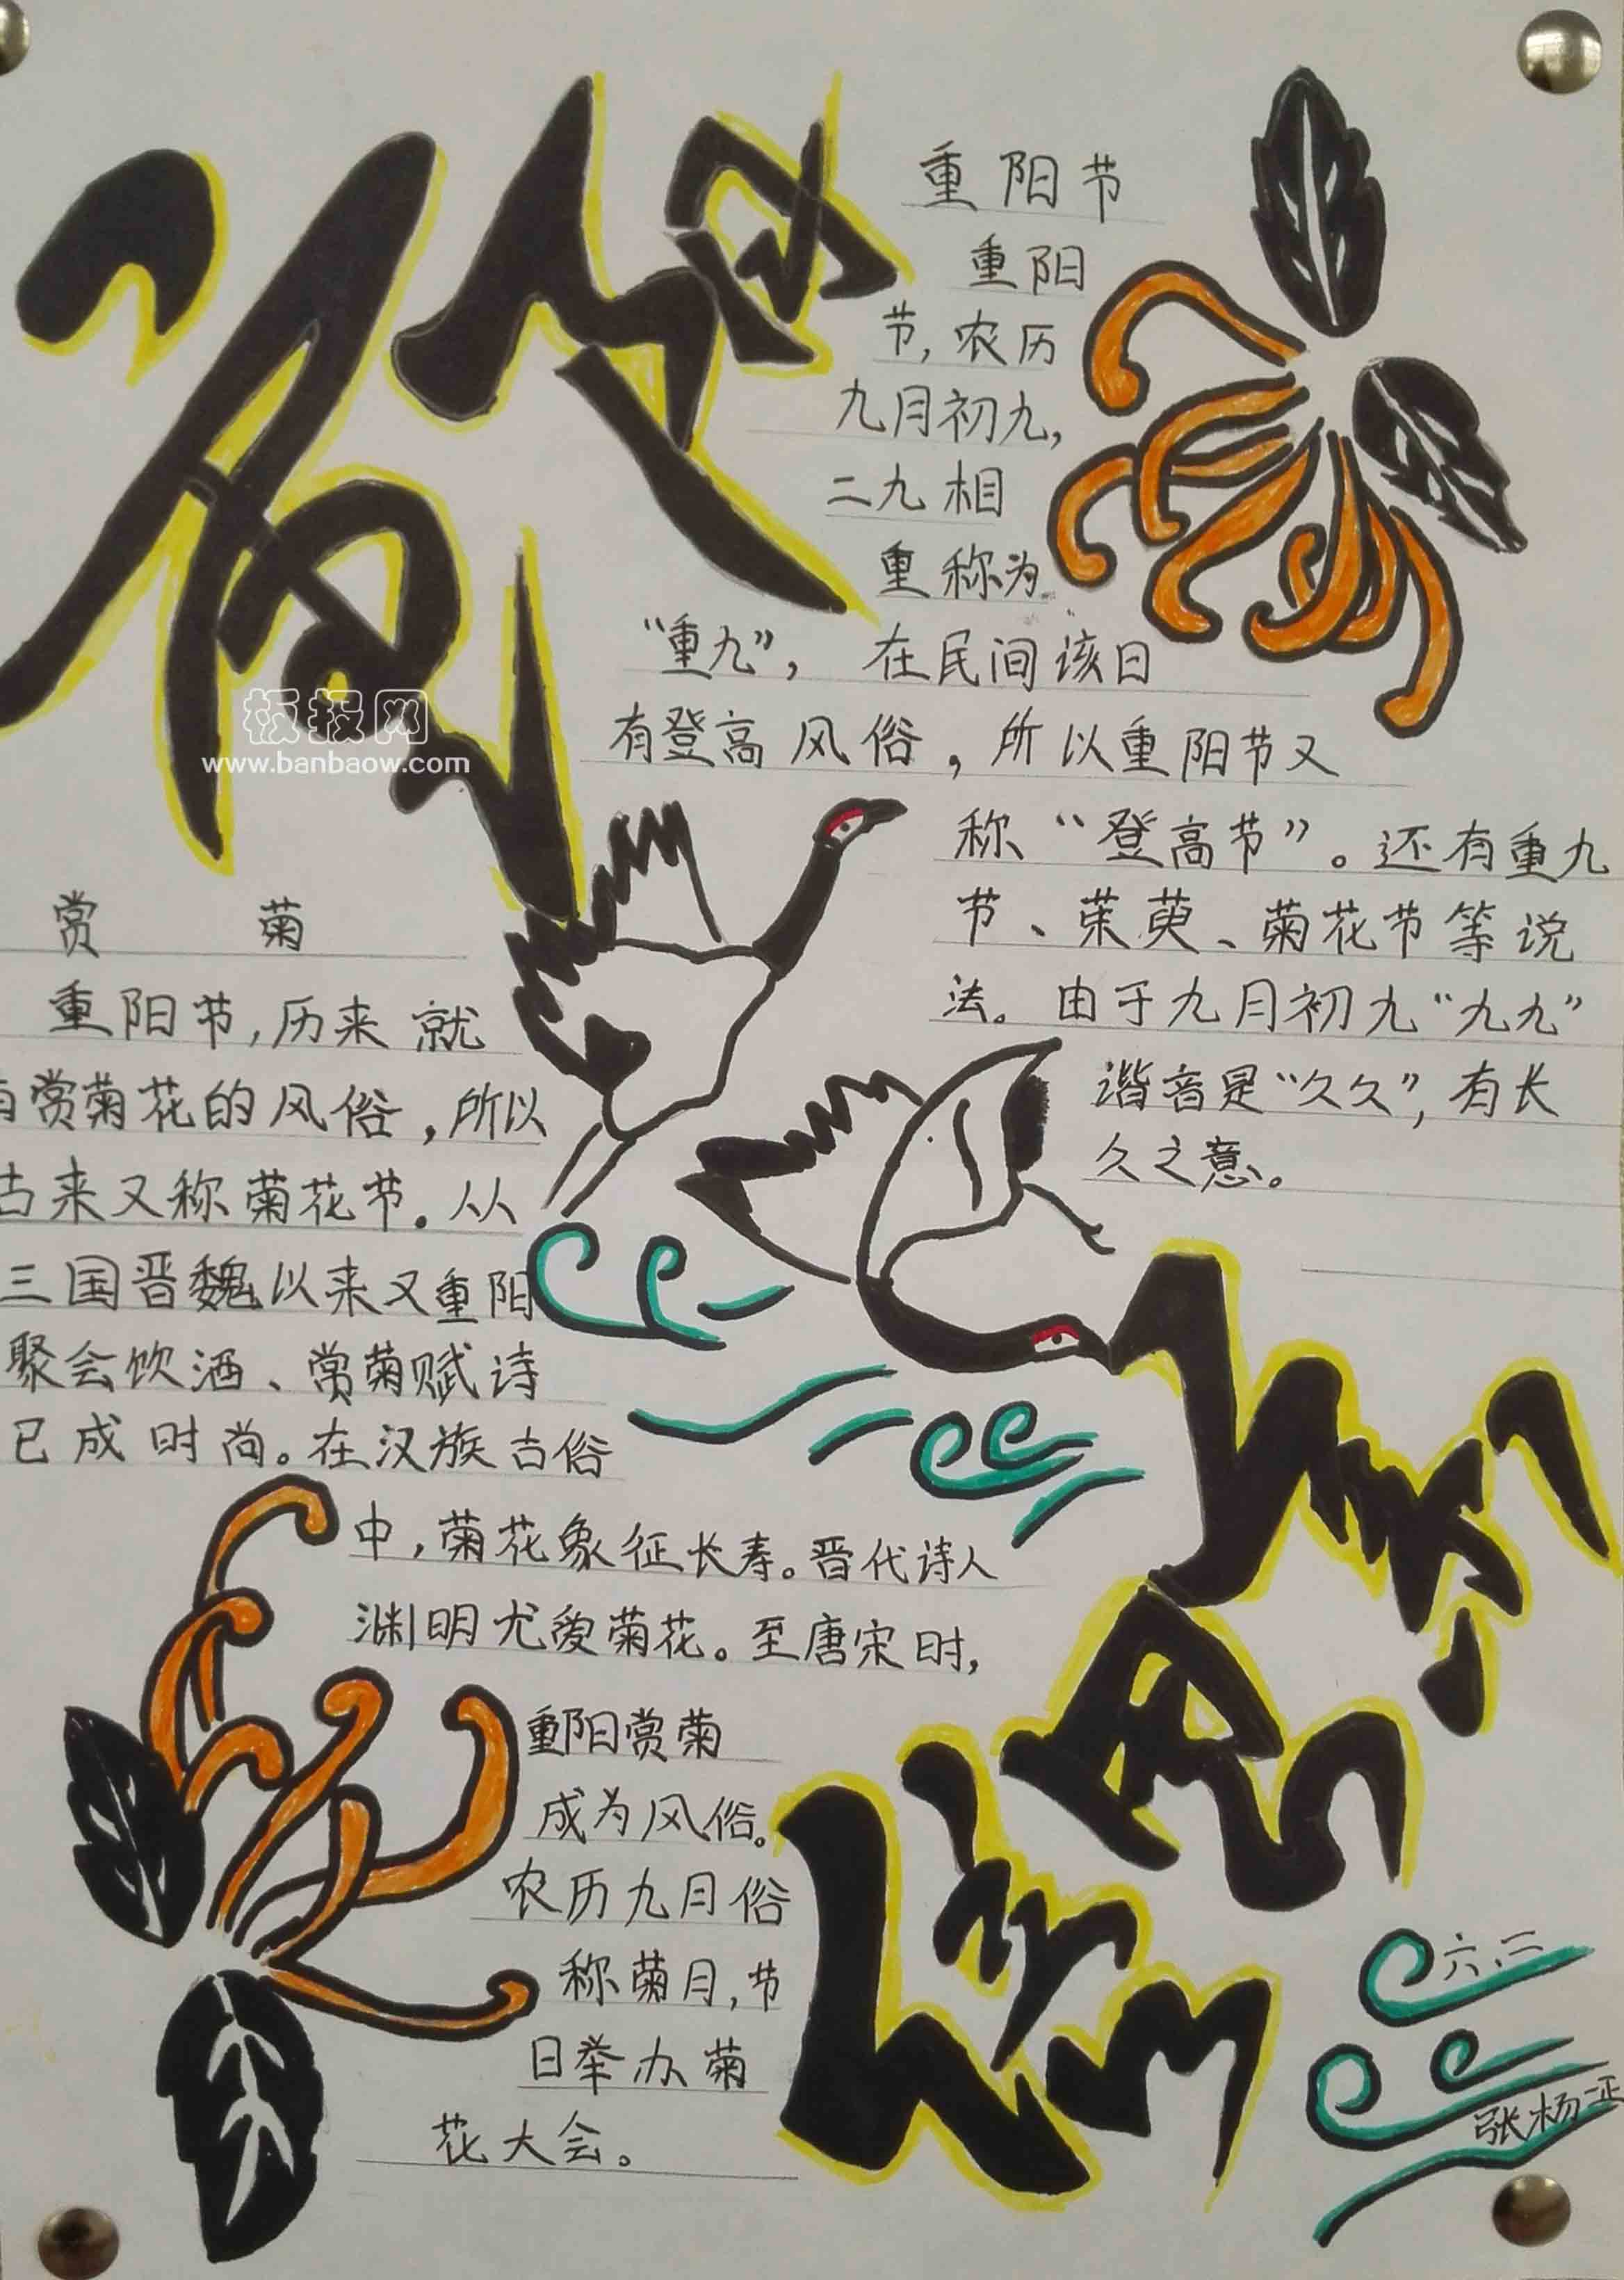 重阳节
重阳
节,农历
九月初九,
二九相
重称为
“重九”, 在民间该日
有登高风俗,所以重阳节又
称“登高节”。还有重九
节、茱萸、菊花节等说
法。由于九月初九“九九”
谐音是“久久”,有长
久之意。
板报网
www.banbaow.com
赏 菊
重阳节,历来就
有赏菊花的风俗,所以
古来又称菊花节。从
三国晋魏以来又重阳
聚会饮酒、赏菊赋诗
已成时尚。在汉族古俗
中,菊花象征长寿。晋代诗人
渊明尤爱菊花。至唐宋时,
重阳赏菊
成为风俗。
农历九月俗
称菊月,节
日举办菊
花大会。
六、二
张杨